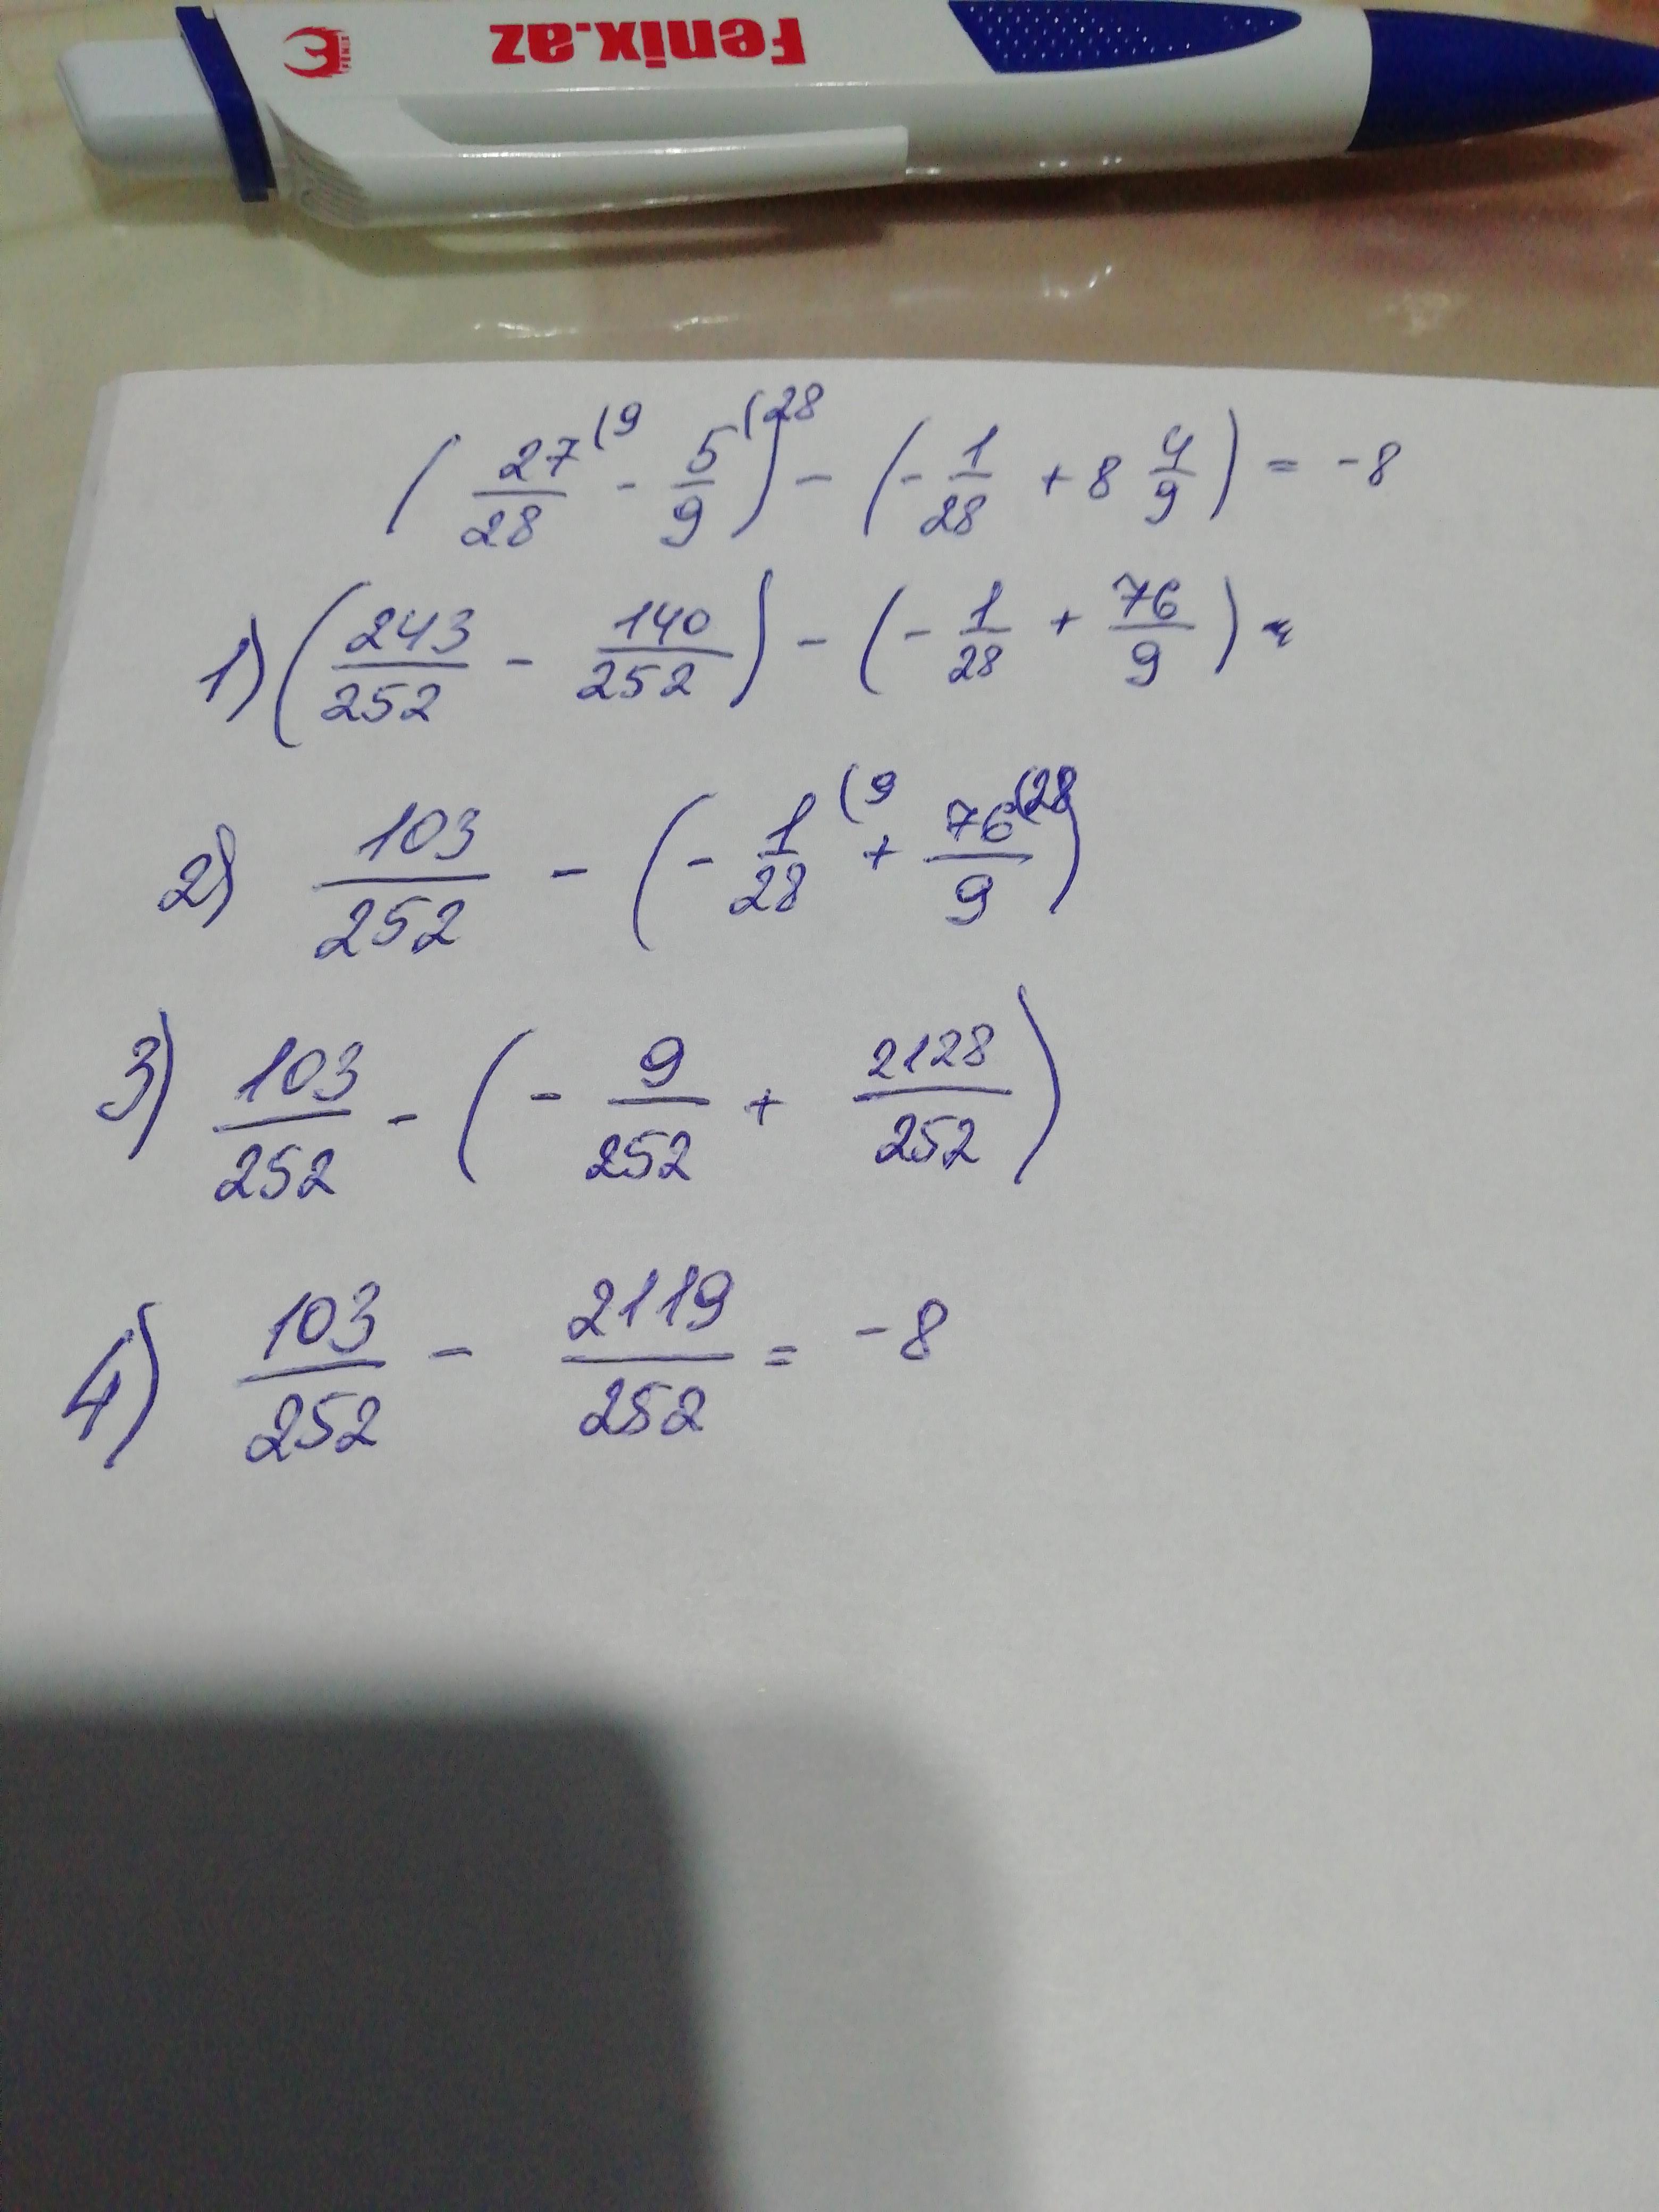 Fenix.az
( 27/28 (9 - 5/9 (28 ) - ( - 1/28 + 8 4/9 ) = -8
1) ( 243/252 - 140/252 ) - ( - 1/28 + 76/9 ) =
2) 103/252 - ( - 1/28 (9 + 76/9 (28 )
3) 103/252 - ( - 9/252 + 2128/252 )
4) 103/252 - 2119/252 = -8